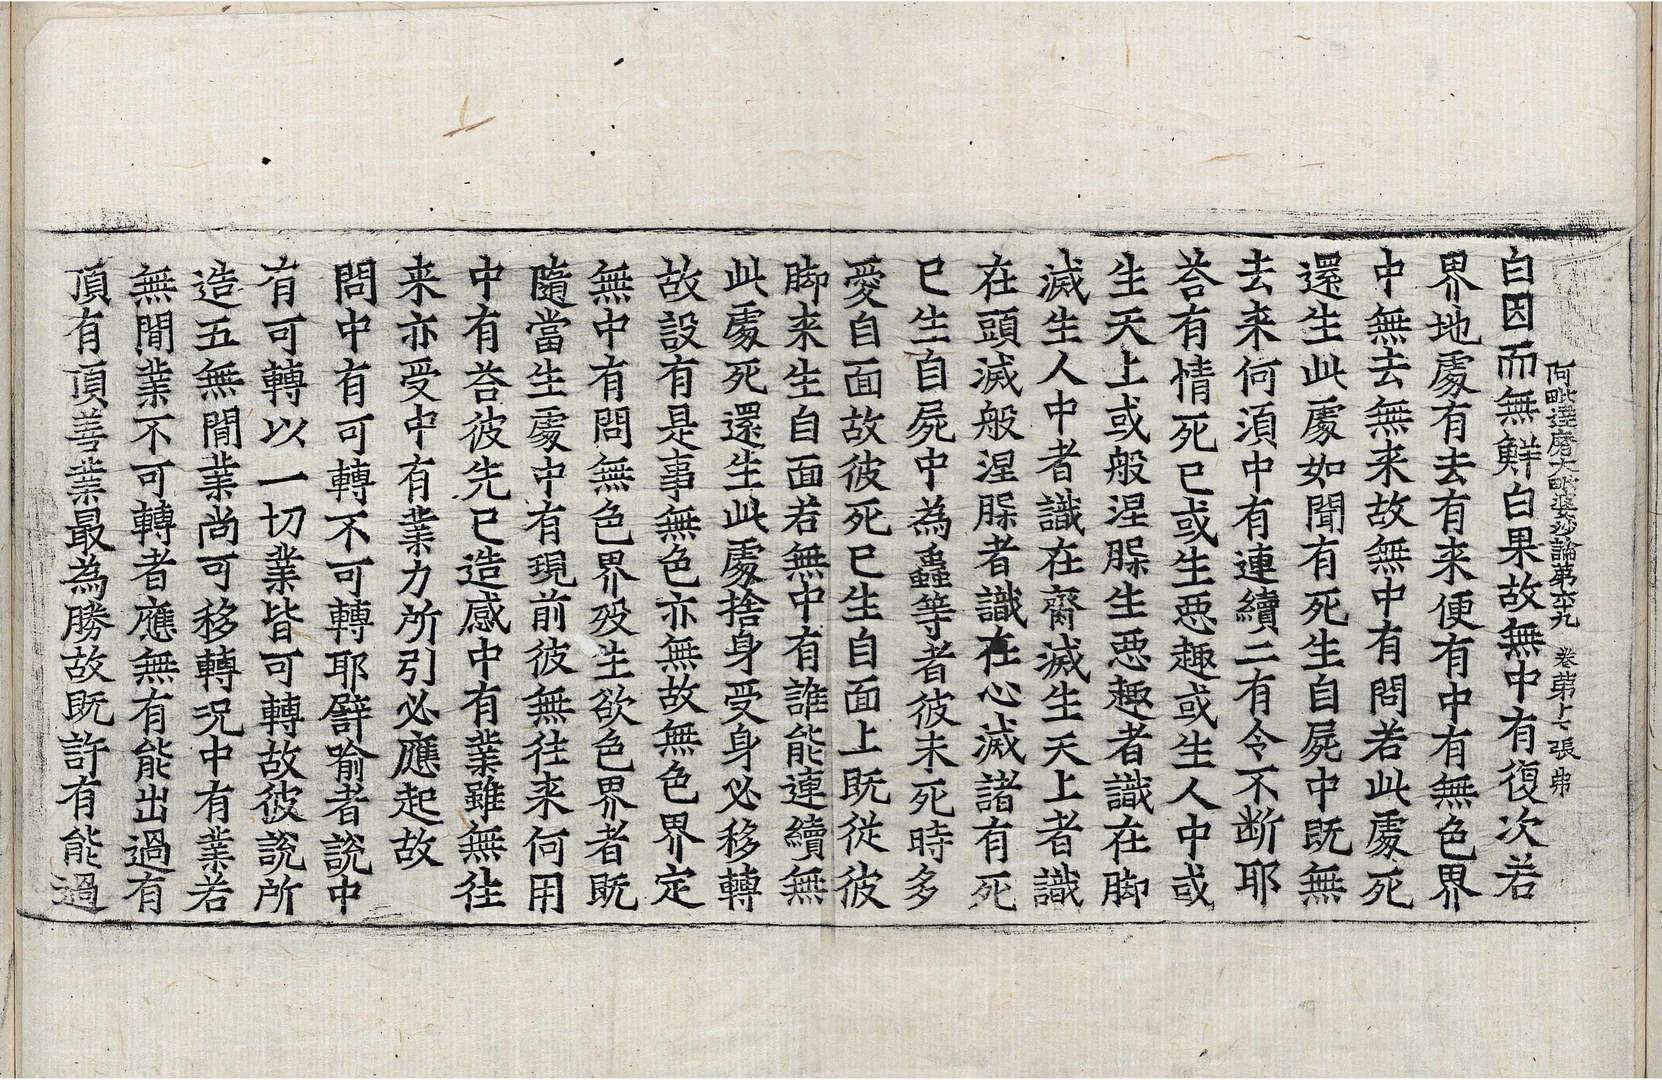 阿毗達磨大毗婆沙論第六十九 卷第七張 弗
白因而無鮮白果故無中有復次若
界地處有去有来便有中有無色界
中無去無来故無中有問若此處死
還生此處如聞有死生自屍中既無
去来何須中有連續二有令不断耶
荅有情死已或生惡趣或生人中或
生天上或般涅槃生惡趣者識在脚
滅生人中者識在齊滅生天上者識
在頭滅般涅槃者識在心滅諸有死
已生自屍中為蟲等者彼未死時多
愛自面故彼死已生自面上既從彼
脚来生自面若無中有誰能連續無
此處死還生此處捨身受身必移轉
故設有是事無色亦無故無色界定
無中有問無色界歿生欲色界者既
隨當生處中有現前彼無往来何用
中有荅彼先已造感中有業雖無往
来亦受中有業力所引必應起故
問中有可轉不可轉耶譬喻者說中
有可轉以一切業皆可轉故彼說所
造五無閒業尚可移轉況中有業若
無閒業不可轉者應無有能出過有
頂有頂善業最為勝故既許有能過